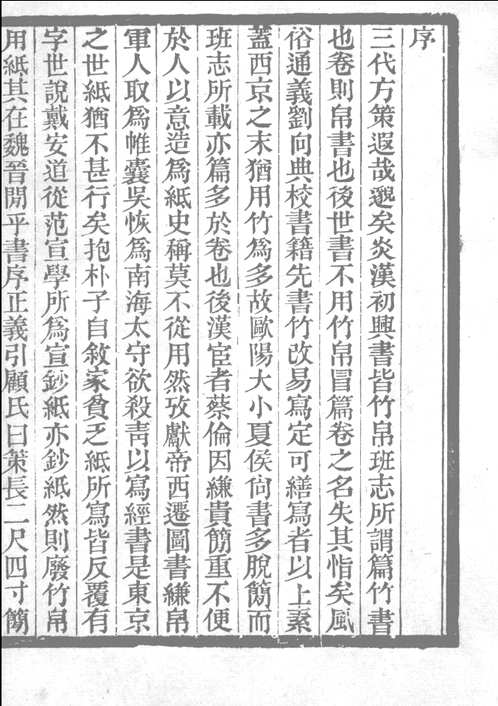 序
三代方策遐哉邈矣炎漢初興書皆竹帛班志所謂篇竹書
也卷則帛書也後世書不用竹帛冒篇卷之名失其恉矣風
俗通義劉向典校書籍先書竹改易寫定可繕寫者以上素
蓋西京之末猶用竹爲多故歐陽大小夏侯尙書多脫簡而
班志所載亦篇多於卷也後漢宦者蔡倫因縑貴簡重不便
於人以意造爲紙史稱莫不從用然攷獻帝西遷圖書縑帛
軍人取爲帷囊吳恢爲南海太守欲殺靑以寫經書是東京
之世紙猶不甚行矣抱朴子自敘家貧乏紙所寫皆反覆有
字世說戴安道從范宣學所爲宣鈔紙亦鈔紙然則廢竹帛
用紙其在魏晉閒乎書序正義引顧氏曰策長二尺四寸簡